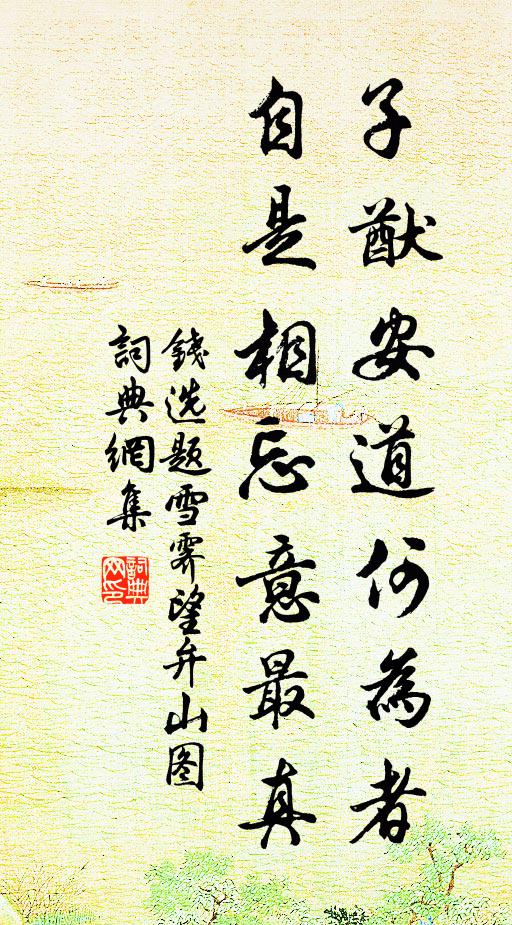 子猷安道何為者
自是相忘意最真
錢选题雪霽望弁山图
詞典網集
詞典网印